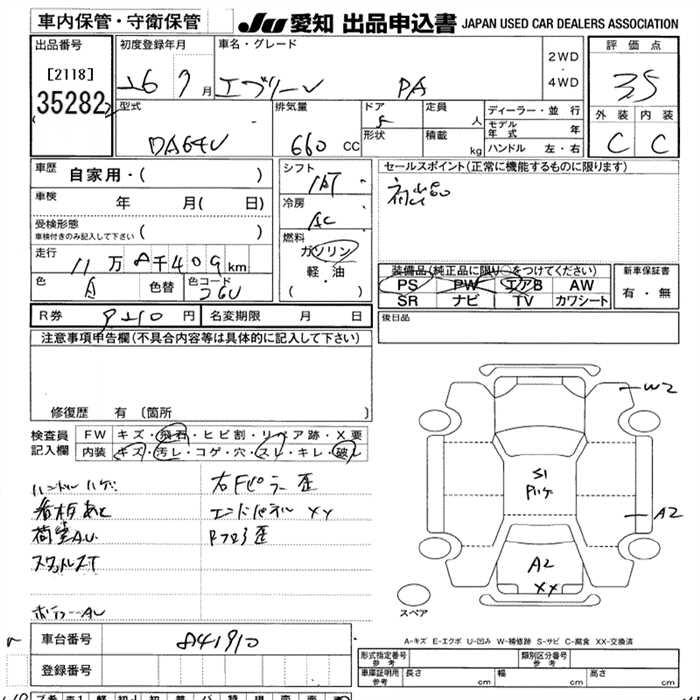 車内保管・守衛保管
JU 愛知 出品申込書 JAPAN USED CAR DEALERS ASSOCIATION
出品番号
[2118]
35282
初度登録年月
16 7 月
車名・グレード
エブリーV PA
2WD
・
4WD
評価点
3.5
外装 内装
C C
型式
DA64V
排気量
660 CC
ドア
5
形状
定員
人
積載
kg
ディーラー・並行
モデル年式 年
ハンドル 左・右
車歴 自家用・( )
車検 年 月( 日)
受検形態
車検付きのみ記入して下さい ( )
走行 11万8千409km
色 色替 色コード
26U
シフト
冷房
AC
燃料
ガソリン
軽・油
( )
セールスポイント(正常に機能するものに限ります)
装備品(純正品に限り○をつけてください)
PS PW エアB AW
SR ナビ TV カワシート
新車保証書
有・無
R券 円
名変期限 月 日
後日品
注意事項申告欄(不具合内容等は具体的に記入して下さい)
修復歴 有 [箇所 ]
検査員
記入欄
FW キズ・飛石・ヒビ割・リペア跡・X要
内装 キズ・汚レ・コゲ・穴・スレ・キレ・破レ
ハンドルハゲ
看板あと
荷室AU
右Fピラー歪
エンドパネルXX
W2
S1
A2
A2
XX
スペア
A-キズ E-エクボ U-凹み W-補修跡 S-サビ C-腐食 XX-交換済
車台番号
登録番号
形式指定番号
参考
類別区分番号
参考
車庫証明用
参考
長さ cm 幅 cm 高さ cm